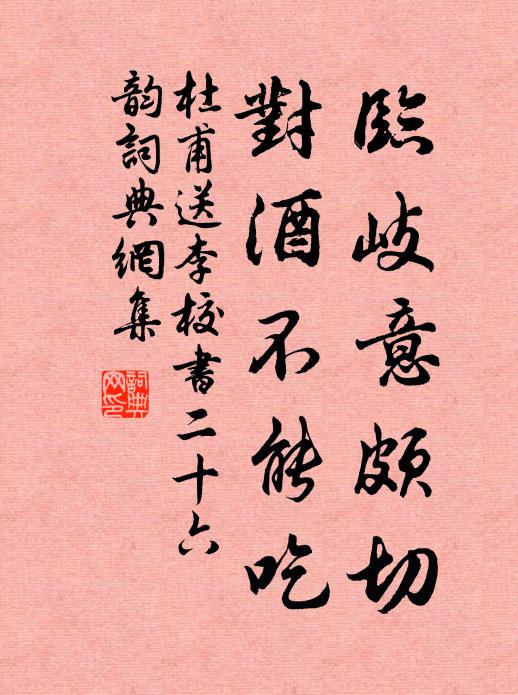 臨岐意頗切
對酒不能吃
杜甫送李校書二十六
韵詞典網集
詞典網印